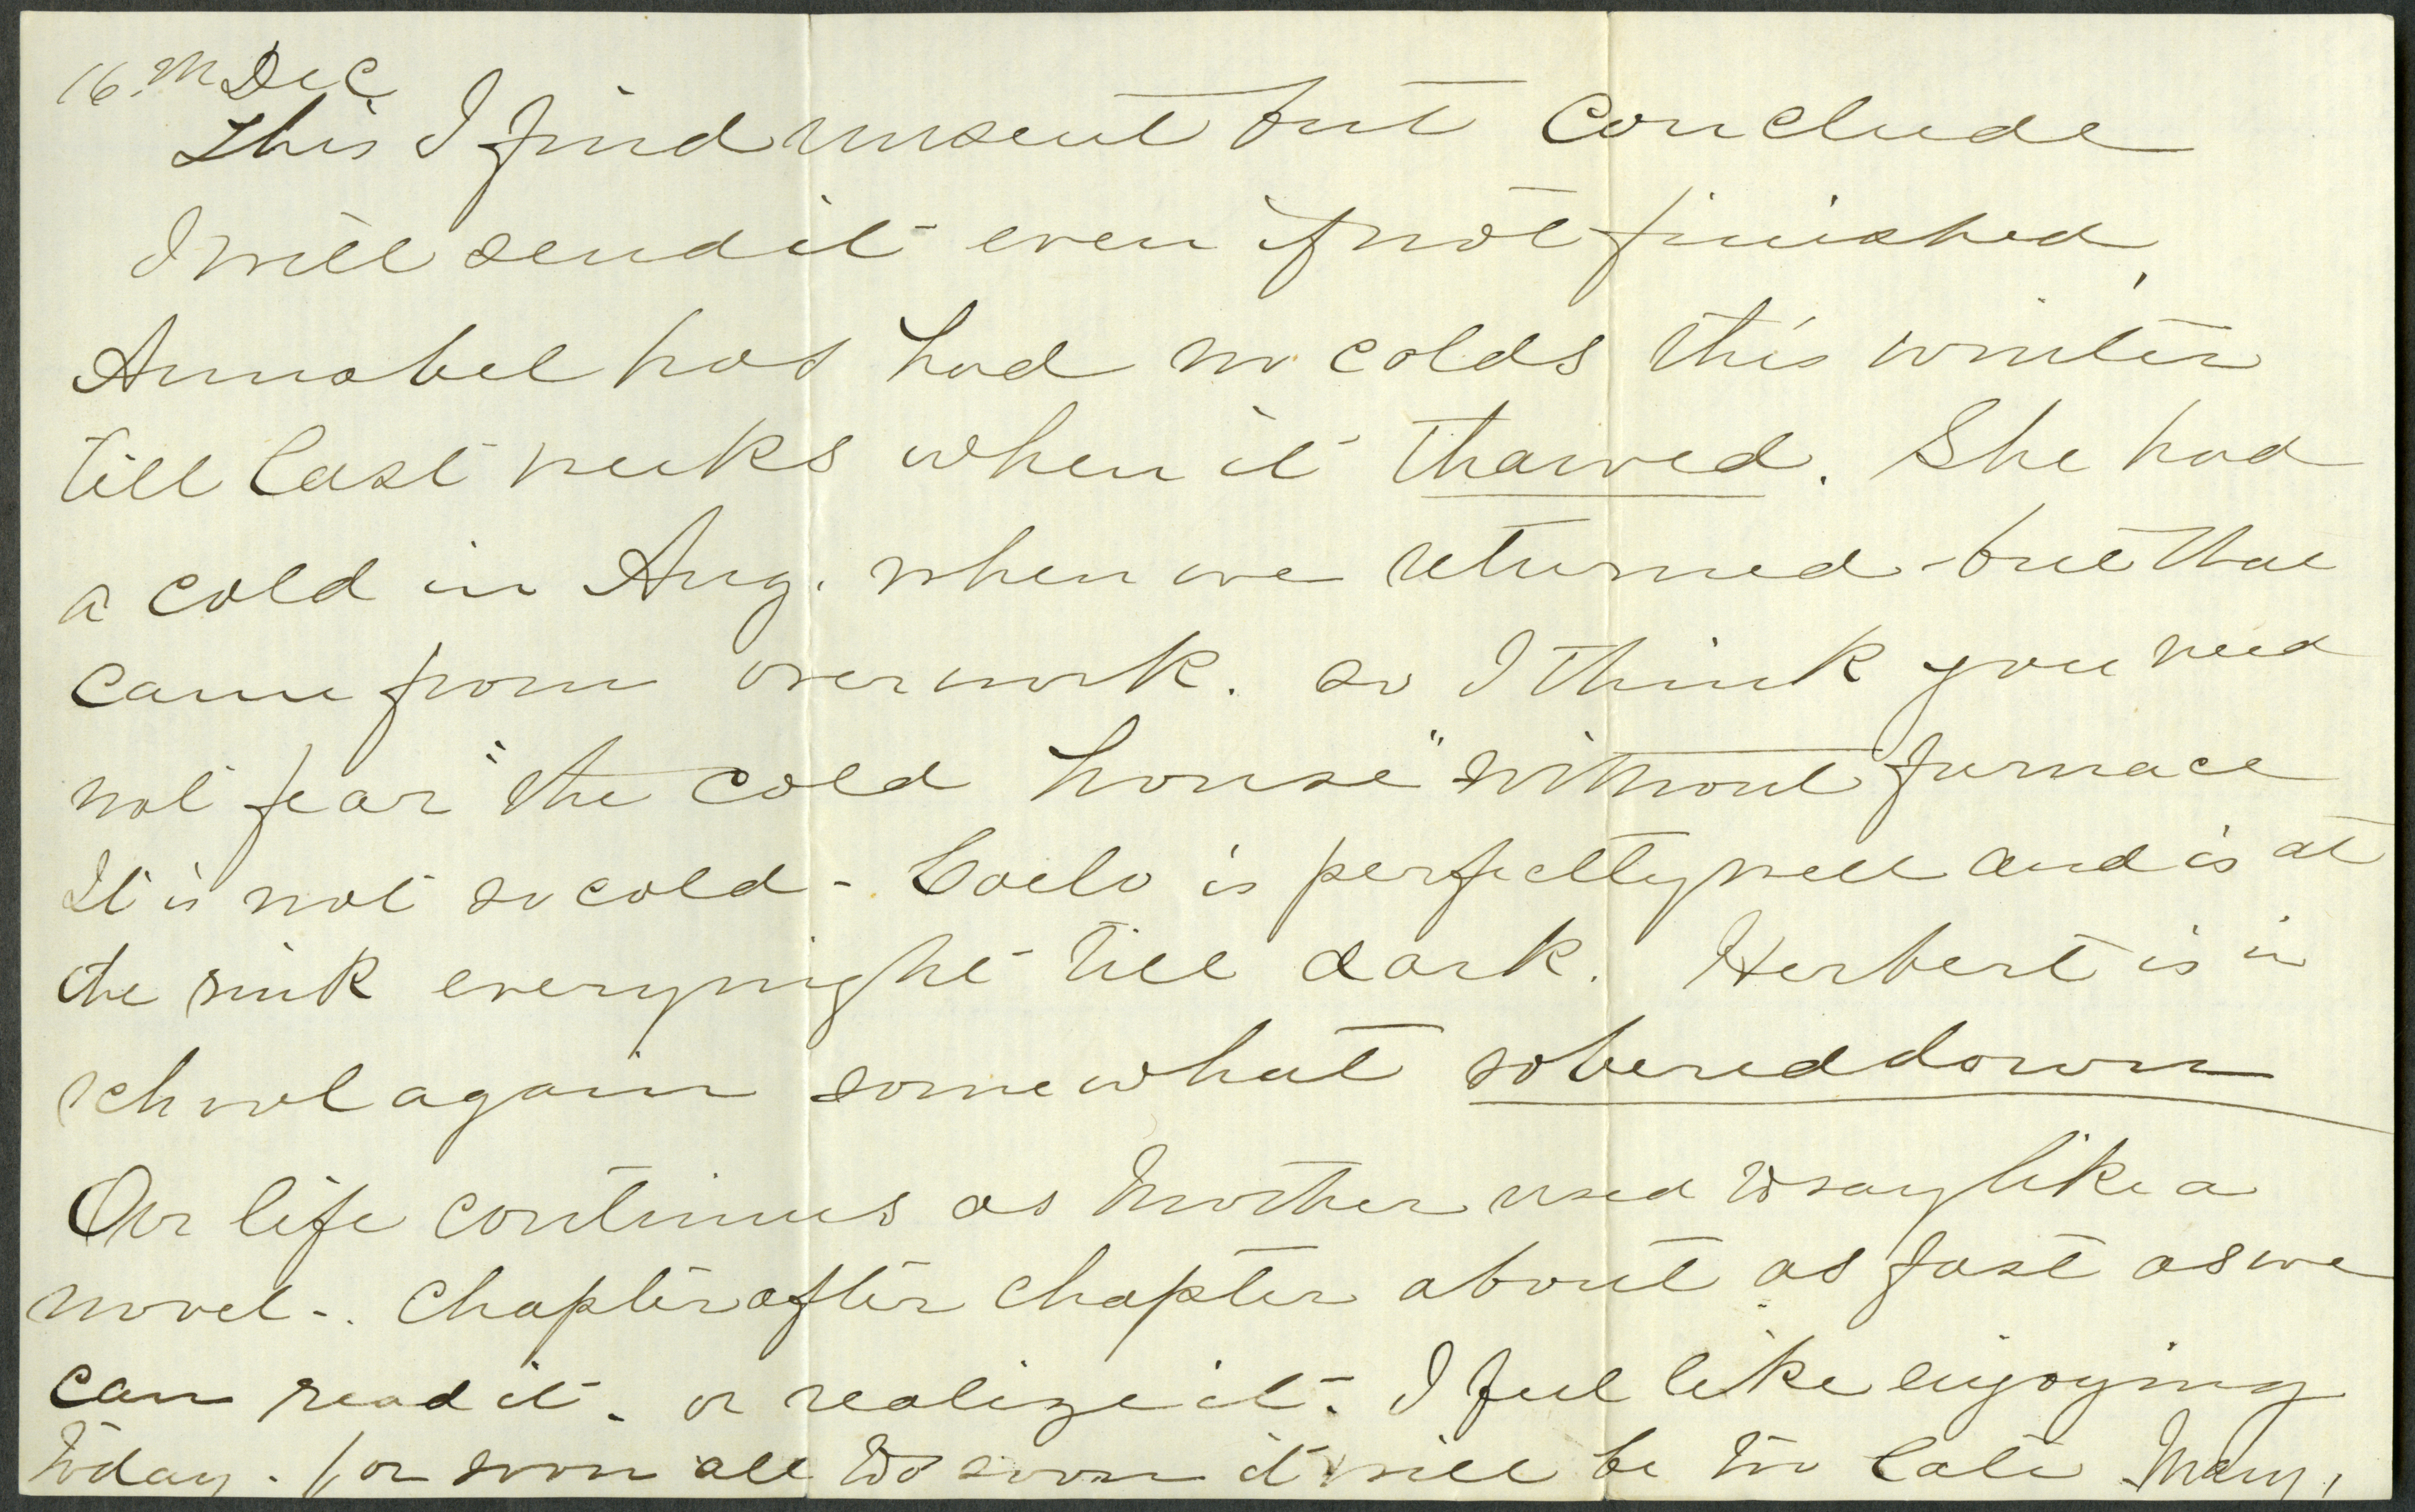 16th Dec
This I find unsent but conclude
I will send it even if not finished,
Annabel has had no colds this winter
till last weeks when it thawed. She had
a cold in Aug. when we returned - but that
came from overwork. so I think you need
not fear "the cold house" without furnace
It is not so cold - Coelo is perfectly well and is at
the rink everynight till dark. Herbert is in
school again somewhat sobered down
Our life continues as Mother used to say like a
novel -. Chapter after chapter about as fast as we
can read it - or realize it - I feel like enjoying
today - for soon all too soon it will be too late Mary,